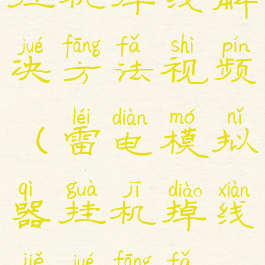 jué fāng fǎ shì pín
决方法视频
léi diàn mó nǐ
（雷电模拟
qì guà jī diào xiàn
器挂机掉线
jiě jué fāng fǎ